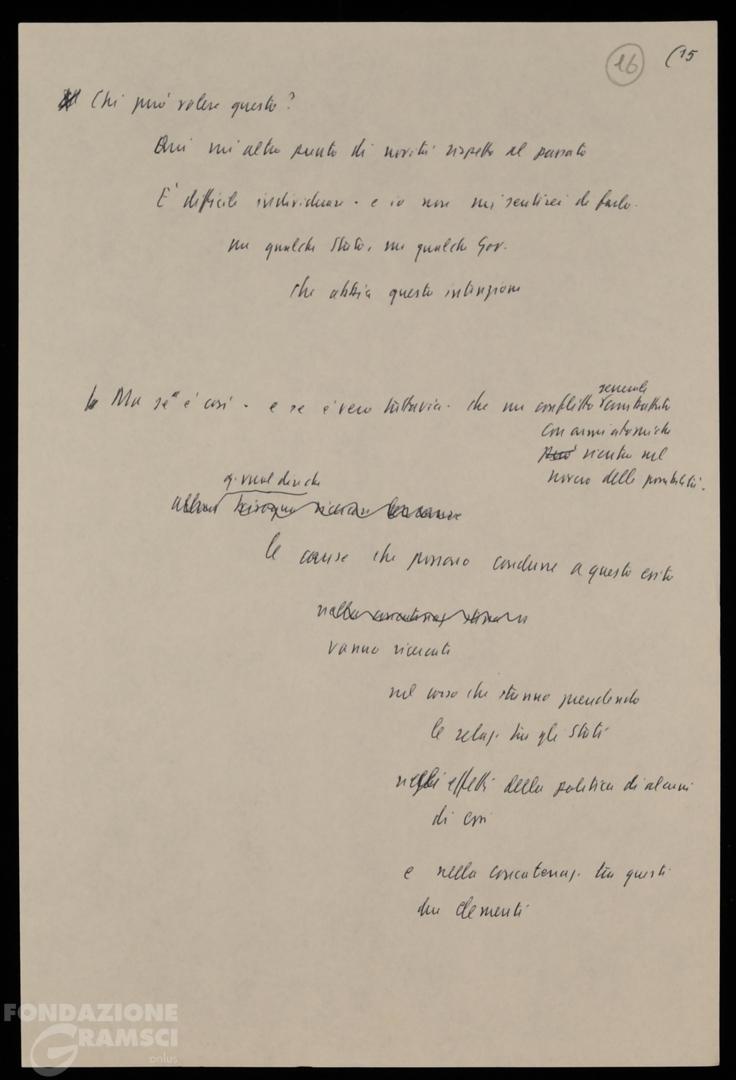 16
(15
Chi può volere questo?
Qui un altro punto di novità rispetto al passato
E' difficile individuare - e io non mi sentirei di farlo -
un qualche Stato, un qualche Gov.
che abbia questa intenzione
Ma se è così - e se è vero tuttavia - che un conflitto generale combattuto
con armi atomiche
può rientra nel
novero delle possibilità.
q. vuol dire che
allora bisogna ricercare
le cause che possono condurre a questo esito
nella concatenaz.
vanno ricercate
nel corso che stanno prendendo
le relaz. tra gli Stati
negli effetti della politica di alcuni
di essi
e nella concatenaz. tra questi
due elementi
FONDAZIONE
GRAMSCI
onlus